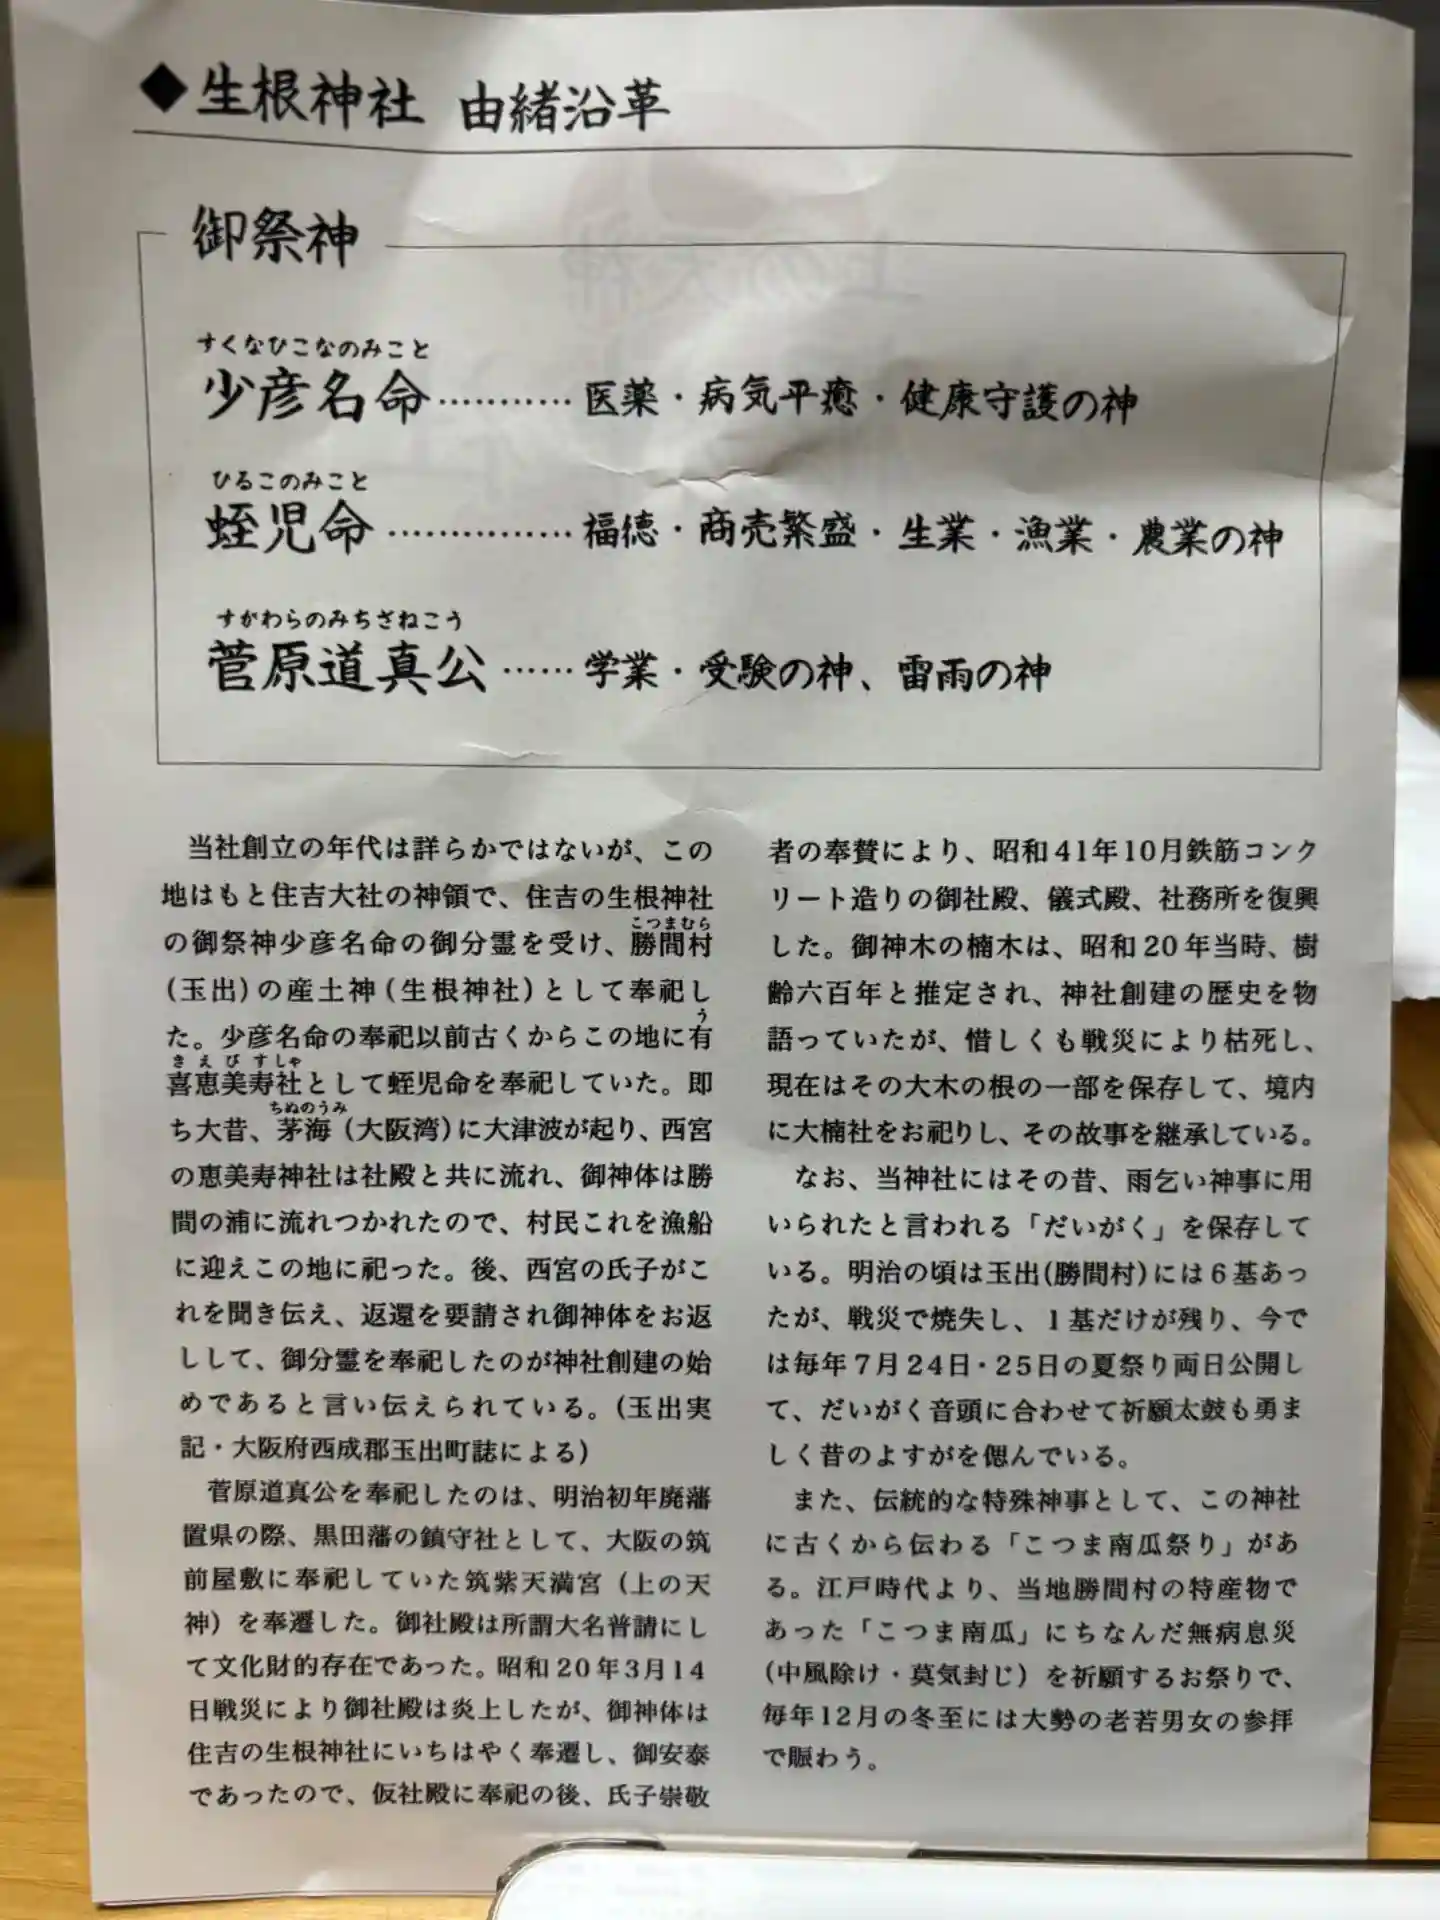 ◆生根神社 由緒沿革
御祭神
すくなひこなのみこと
少彦名命…………医薬・病気平癒・健康守護の神
ひるこのみこと
蛭児命……………福徳・商売繁盛・生業・漁業・農業の神
すがわらのみちざねこう
菅原道真公……学業・受験の神、雷雨の神
当社創立の年代は詳らかではないが、この
地はもと住吉大社の神領で、住吉の生根神社
こつまむら
の御祭神少彦名命の御分霊を受け、勝間村
(玉出)の産土神(生根神社)として奉祀し
う
た。少彦名命の奉祀以前古くからこの地に有
きえびすしゃ
喜恵美寿社として蛭児命を奉祀していた。即
ちぬのうみ
ち大昔、茅海(大阪湾)に大津波が起り、西宮
の恵美寿神社は社殿と共に流れ、御神体は勝
間の浦に流れつかれたので、村民これを漁船
に迎えこの地に祀った。後、西宮の氏子がこ
れを聞き伝え、返還を要請され御神体をお返
しして、御分霊を奉祀したのが神社創建の始
めであると言い伝えられている。(玉出実
記・大阪府西成郡玉出町誌による)
菅原道真公を奉祀したのは、明治初年廃藩
置県の際、黒田藩の鎮守社として、大阪の筑
前屋敷に奉祀していた筑紫天満宮(上の天
神)を奉遷した。御社殿は所謂大名普請にし
て文化財的存在であった。昭和20年3月14
日戦災により御社殿は炎上したが、御神体は
住吉の生根神社にいちはやく奉遷し、御安泰
であったので、仮社殿に奉祀の後、氏子崇敬
者の奉賛により、昭和41年10月鉄筋コンク
リート造りの御社殿、儀式殿、社務所を復興
した。御神木の楠木は、昭和20年当時、樹
齢六百年と推定され、神社創建の歴史を物
語っていたが、惜しくも戦災により枯死し、
現在はその大木の根の一部を保存して、境内
に大楠社をお祀りし、その故事を継承している。
なお、当神社にはその昔、雨乞い神事に用
いられたと言われる「だいがく」を保存して
いる。明治の頃は玉出(勝間村)には6基あっ
たが、戦災で焼失し、1基だけが残り、今で
は毎年7月24日・25日の夏祭り両日公開し
て、だいがく音頭に合わせて祈願太鼓も勇ま
しく昔のよすがを偲んでいる。
また、伝統的な特殊神事として、この神社
に古くから伝わる「こつま南瓜祭り」があ
る。江戸時代より、当地勝間村の特産物で
あった「こつま南瓜」にちなんだ無病息災
(中風除け・莫気封じ)を祈願するお祭りで、
毎年12月の冬至には大勢の老若男女の参拝
で賑わう。